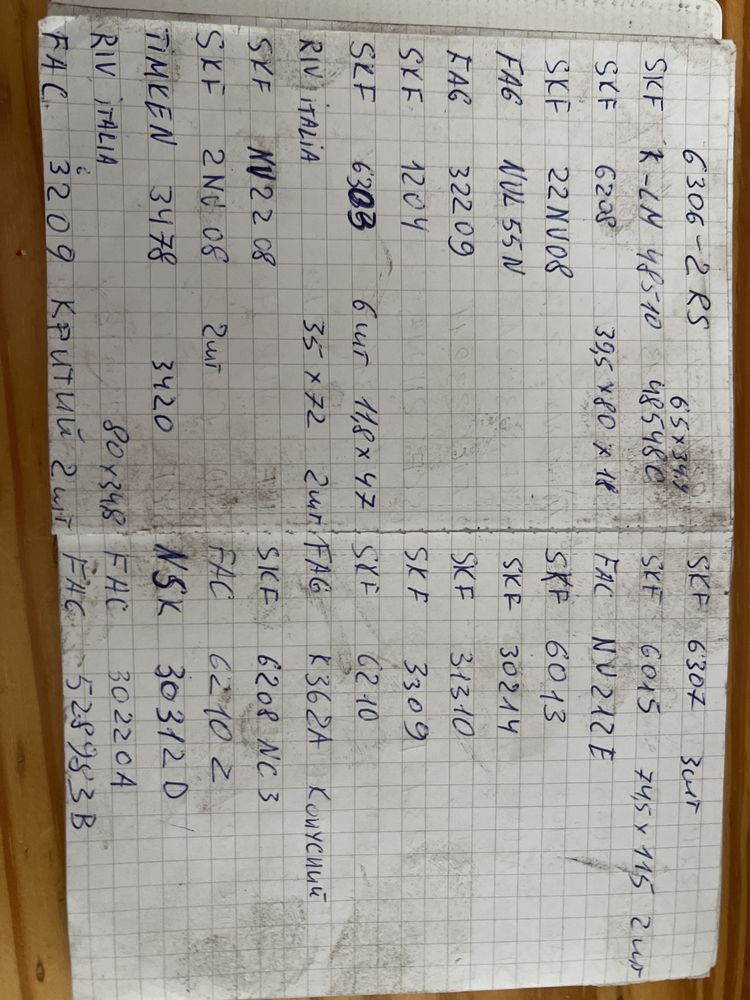 6306-2RS
65x34,9
SKF K-LM 48510 48548C
SKF 6208 39,5x80x18
SKF 22NU08
FAG NUL 55N
FAG 32209
SKF 1204
SKF 6303 6шт 11,8x47
RIV iTALiA 35x72 2шт
SKF NU2208
SKF 2NU08 2шт
TIMKEN 3478 3420
RIV iTALiA 80x348
FAG 3209 КРИТИЙ 2шт
SKF 6307 3шт
SKF 6015 74,5x115 2шт
FAG NU212E
SKF 6013
SKF 30214
SKF 31310
SKF 3309
SKF 6210
FAG K362A Конусний
SKF 6208 NC3
FAG 6210 Z
NSK 30312D
FAG 30220A
FAG 528983B